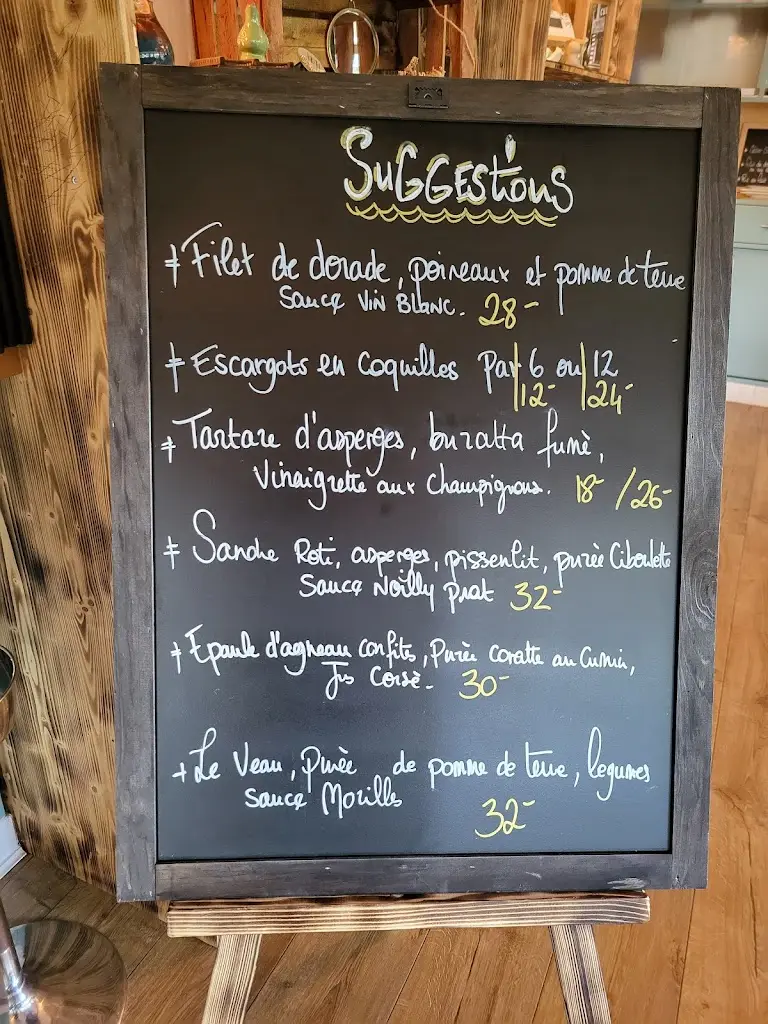 Suggestions
+ Filet de dorade, poireaux et pomme de terre
Sauce VIN BLANC. 28-
+ Escargots en coquilles Par 6 ou 12
12- 24-
+ Tartare d'asperges, buratta fumè,
Vinaigrette aux Champignons. 18- / 26-
+ Sandre Roti, asperges, pissenlit, purèe Ciboulette
Sauce Noilly prat 32-
+ Epaule d'agneau confits, Purèe carotte au Cumin,
Jus Corsè. 30-
+ Le Veau, Purèe de pomme de terre, legumes
sauce Morilles
32-